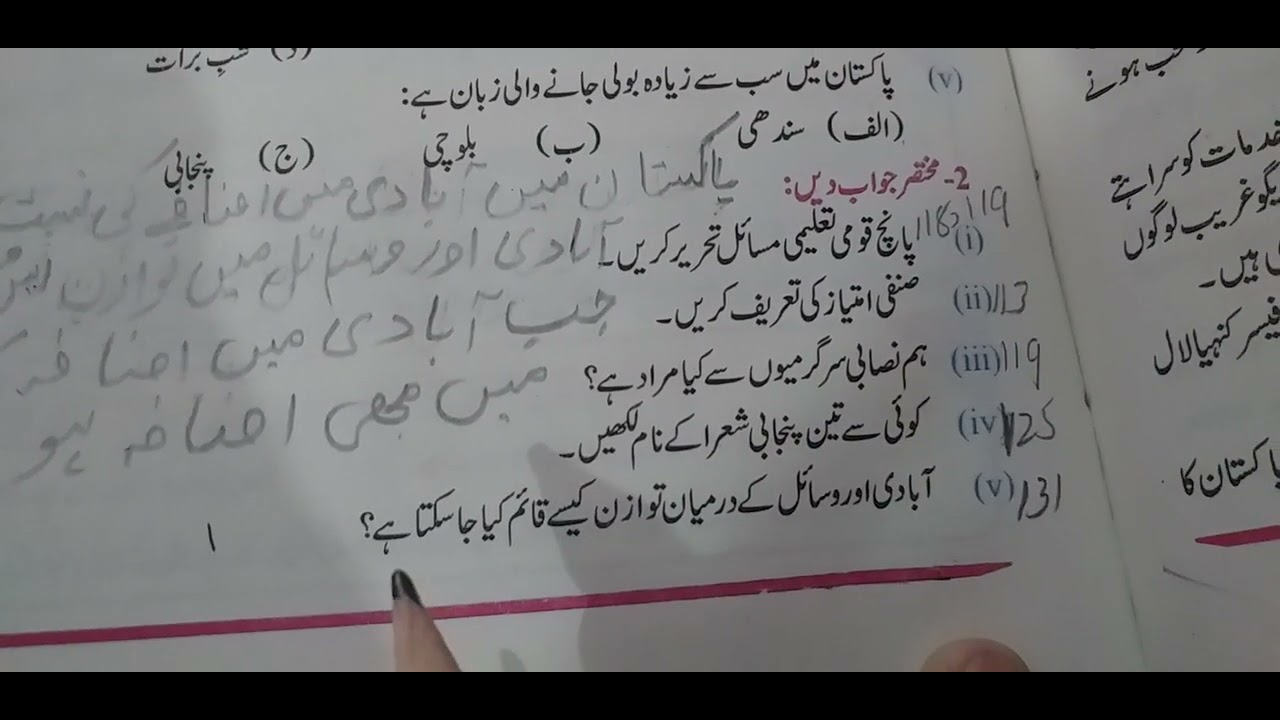 (د) شب برات
(v) پاکستان میں سب سے زیادہ بولی جانے والی زبان ہے:
(الف) سندھی (ب) بلوچی (ج) پنجابی
2- مختصر جواب دیں:
پاکستان میں آبادی میں اضافے کی نسبت
(i) پانچ قومی تعلیمی مسائل تحریر کریں۔ 118,119
آبادی اور وسائل میں توازن
(ii) صنفی امتیاز کی تعریف کریں۔ 113
جب آبادی میں اضافہ
(iii) ہم نصابی سرگرمیوں سے کیا مراد ہے؟ 119
میں بھی اضافہ ہو
(iv) کوئی سے تین پنجابی شعرا کے نام لکھیں۔ 125
(v) آبادی اور وسائل کے درمیان توازن کیسے قائم کیا جا سکتا ہے؟ 131
ہونے
خدمات کو سراہتے
غریب لوگوں
ہیں۔
کنہیا لال
پاکستان کا